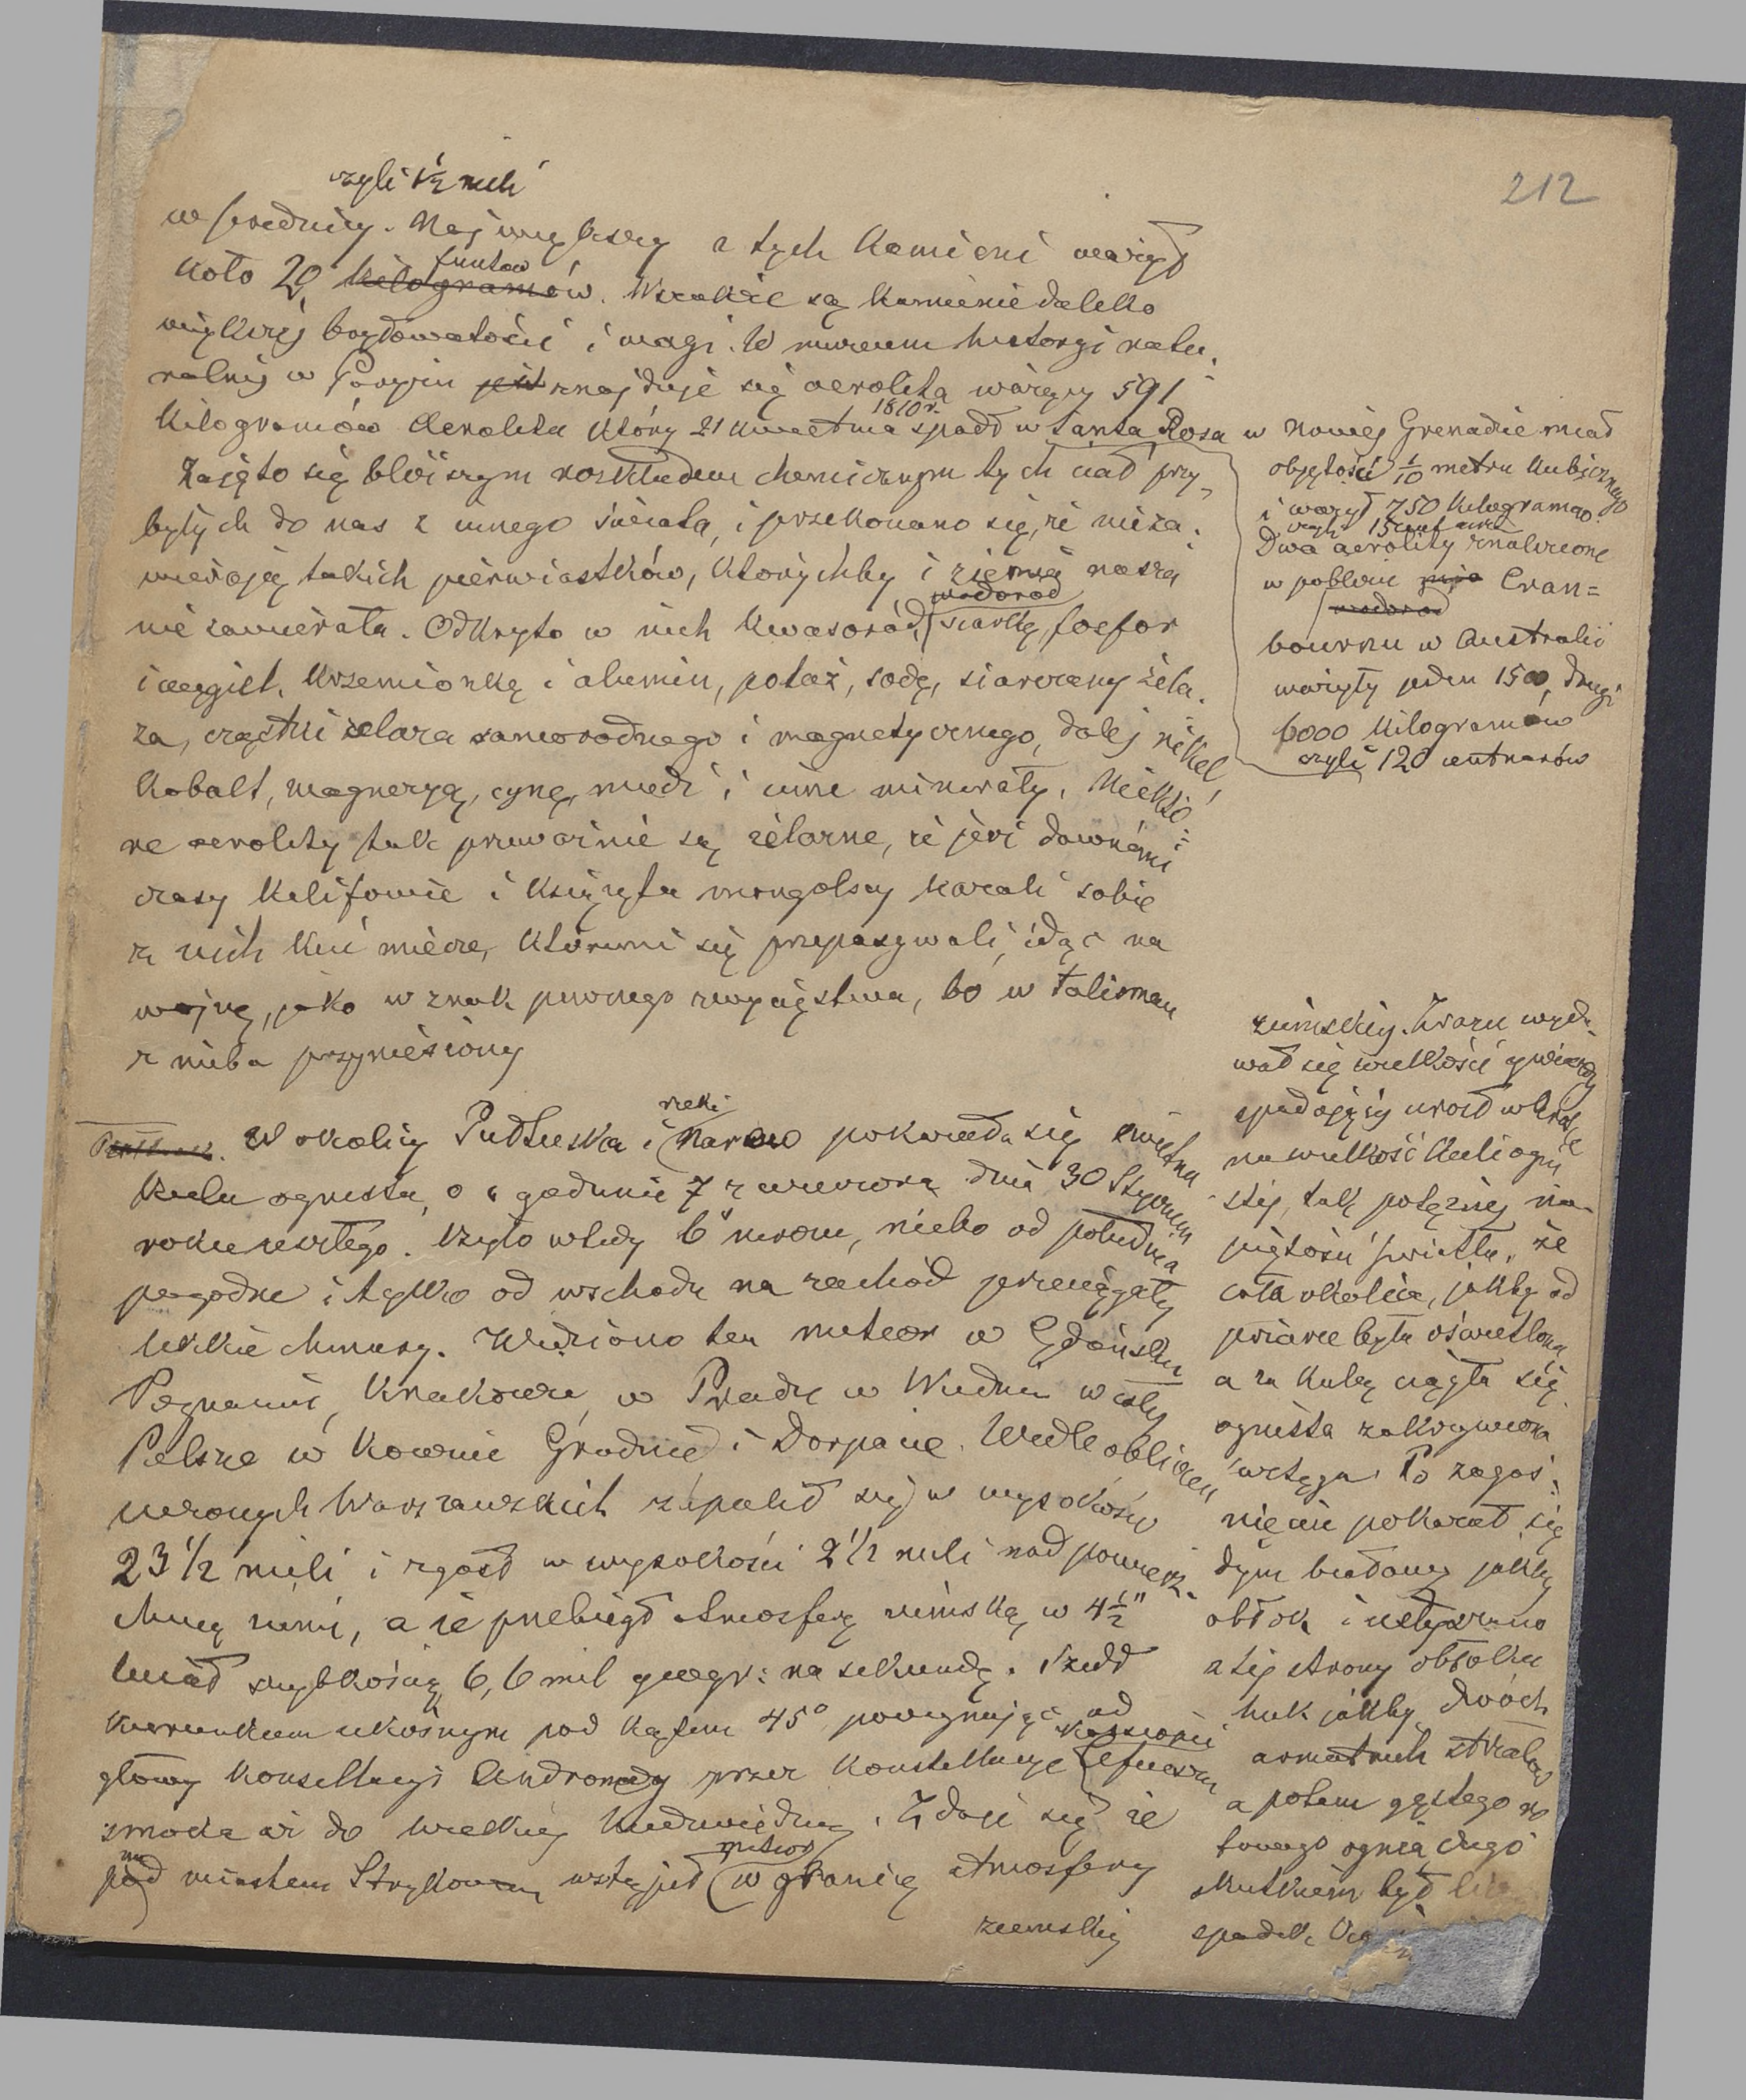 212
czyli 1½ mili
w średnicy. Największy z tych Kamieni ważył
koło 20 funtów Kilogramów. Wszakże są kamienie daleko
większej objętości i wagi. W muzeum historyi natu-
ralnej w Paryżu jest znajduje się aerolita ważący 591
Kilogramów Aerolita który 21 Kwietnia 1810 r. spadł w Santa Rosa w nowej Grenadzie miał
objętości 1/10 metru Kubicznego
i ważył 750 Kilogramów.
czyli 15 centnarów
Dwa aerolity znalezione
w pobliżu Cran=
wodorod
bournu w Australii
ważyły jeden 1500, drugi
6000 Kilogramów
czyli 120 centnarów
Zajęto się bliższym rozkładem chemicznym tych ciał przy-
byłych do nas z innego świata, i przekonano się, że nie za-
wierają takich pierwiastków, którychby i ziemia nasza
nie zawierała. Odkryto w nich Kwasoród, wodorod siarkę, fosfor
i węgiel, Krzemionkę i alumin, potaż, sodę, siarczany żela-
za, cząstki żelaza samorodnego i magnetycznego, dalej nikel
Kobalt, magnezyą, cynę, miedź i inne minerały. Niektó=
re aerolity tak przeważnie są żelazne, że jeż dawnémi
czasy Kalifowie i Książęta mongolscy kazali sobie
z nich kuć miecze, któremi się przepasywali, idąc na
wojnę, jako w znak pewnego zwycięstwa, bo w talisman
z nieba przyniesiony
W okolicy Pułtuska i rzeki Narew pokazała się świetna
Kula ognista, o godzinie 7 z wieczora dnia 30 Stycznia
roku zeszłego. Było wtedy 6° mrozu, niebo od południa
pogodne i tylko od wschodu na zachód przeciągały
lekkie chmury. Widziono ten meteor w Gdańsku
Poznaniu, Krakowie, w Pradze w Wiedniu w całej
Polsce w Kownie Grodnie i Dorpacie. Wedle obliczeń
uczonych Warszawskich zapalił się w wysokości
23 1/2 mili i zgasł w wysokości 2 1/2 mili nad powierz-
chnią ziemi, a że przebiegł Atmosferę ziemską w 4½"
miał szybkością 6,6 mil geogr: na sekundę. Szedł
kierunkiem ukośnym pod kątem 45° począwszy od
głowy Konstellacyi Andromedy przez Konstellacye Kassiopei Cefeusza
smoka aż do wielkiej Niedźwiedzicy. Zdaje się że
nad miastem Strykowem wstąpił meteor w granicę atmosfery
ziemskiej
ziemskiej. Zrazu wyda-
wał się wielkości gwiazdy
spadającej urosł wkrótce
na wielkość Kuli ogni-
stej, tak potężnej na-
piętości światła, że
cała okolica, jakby od
pożaru była oświetlona
a za Kulą ciągła się
ognista zakrzywiona
wstęga. Po zagaś-
nięciu pokazał się
dym białawy jakby
obłok i usłyszano
z tej strony obłoku
huk jakby dwóch
armatnich strzałów
a potem gęstego ro-
towego ognia długo
skutkiem był
spadek